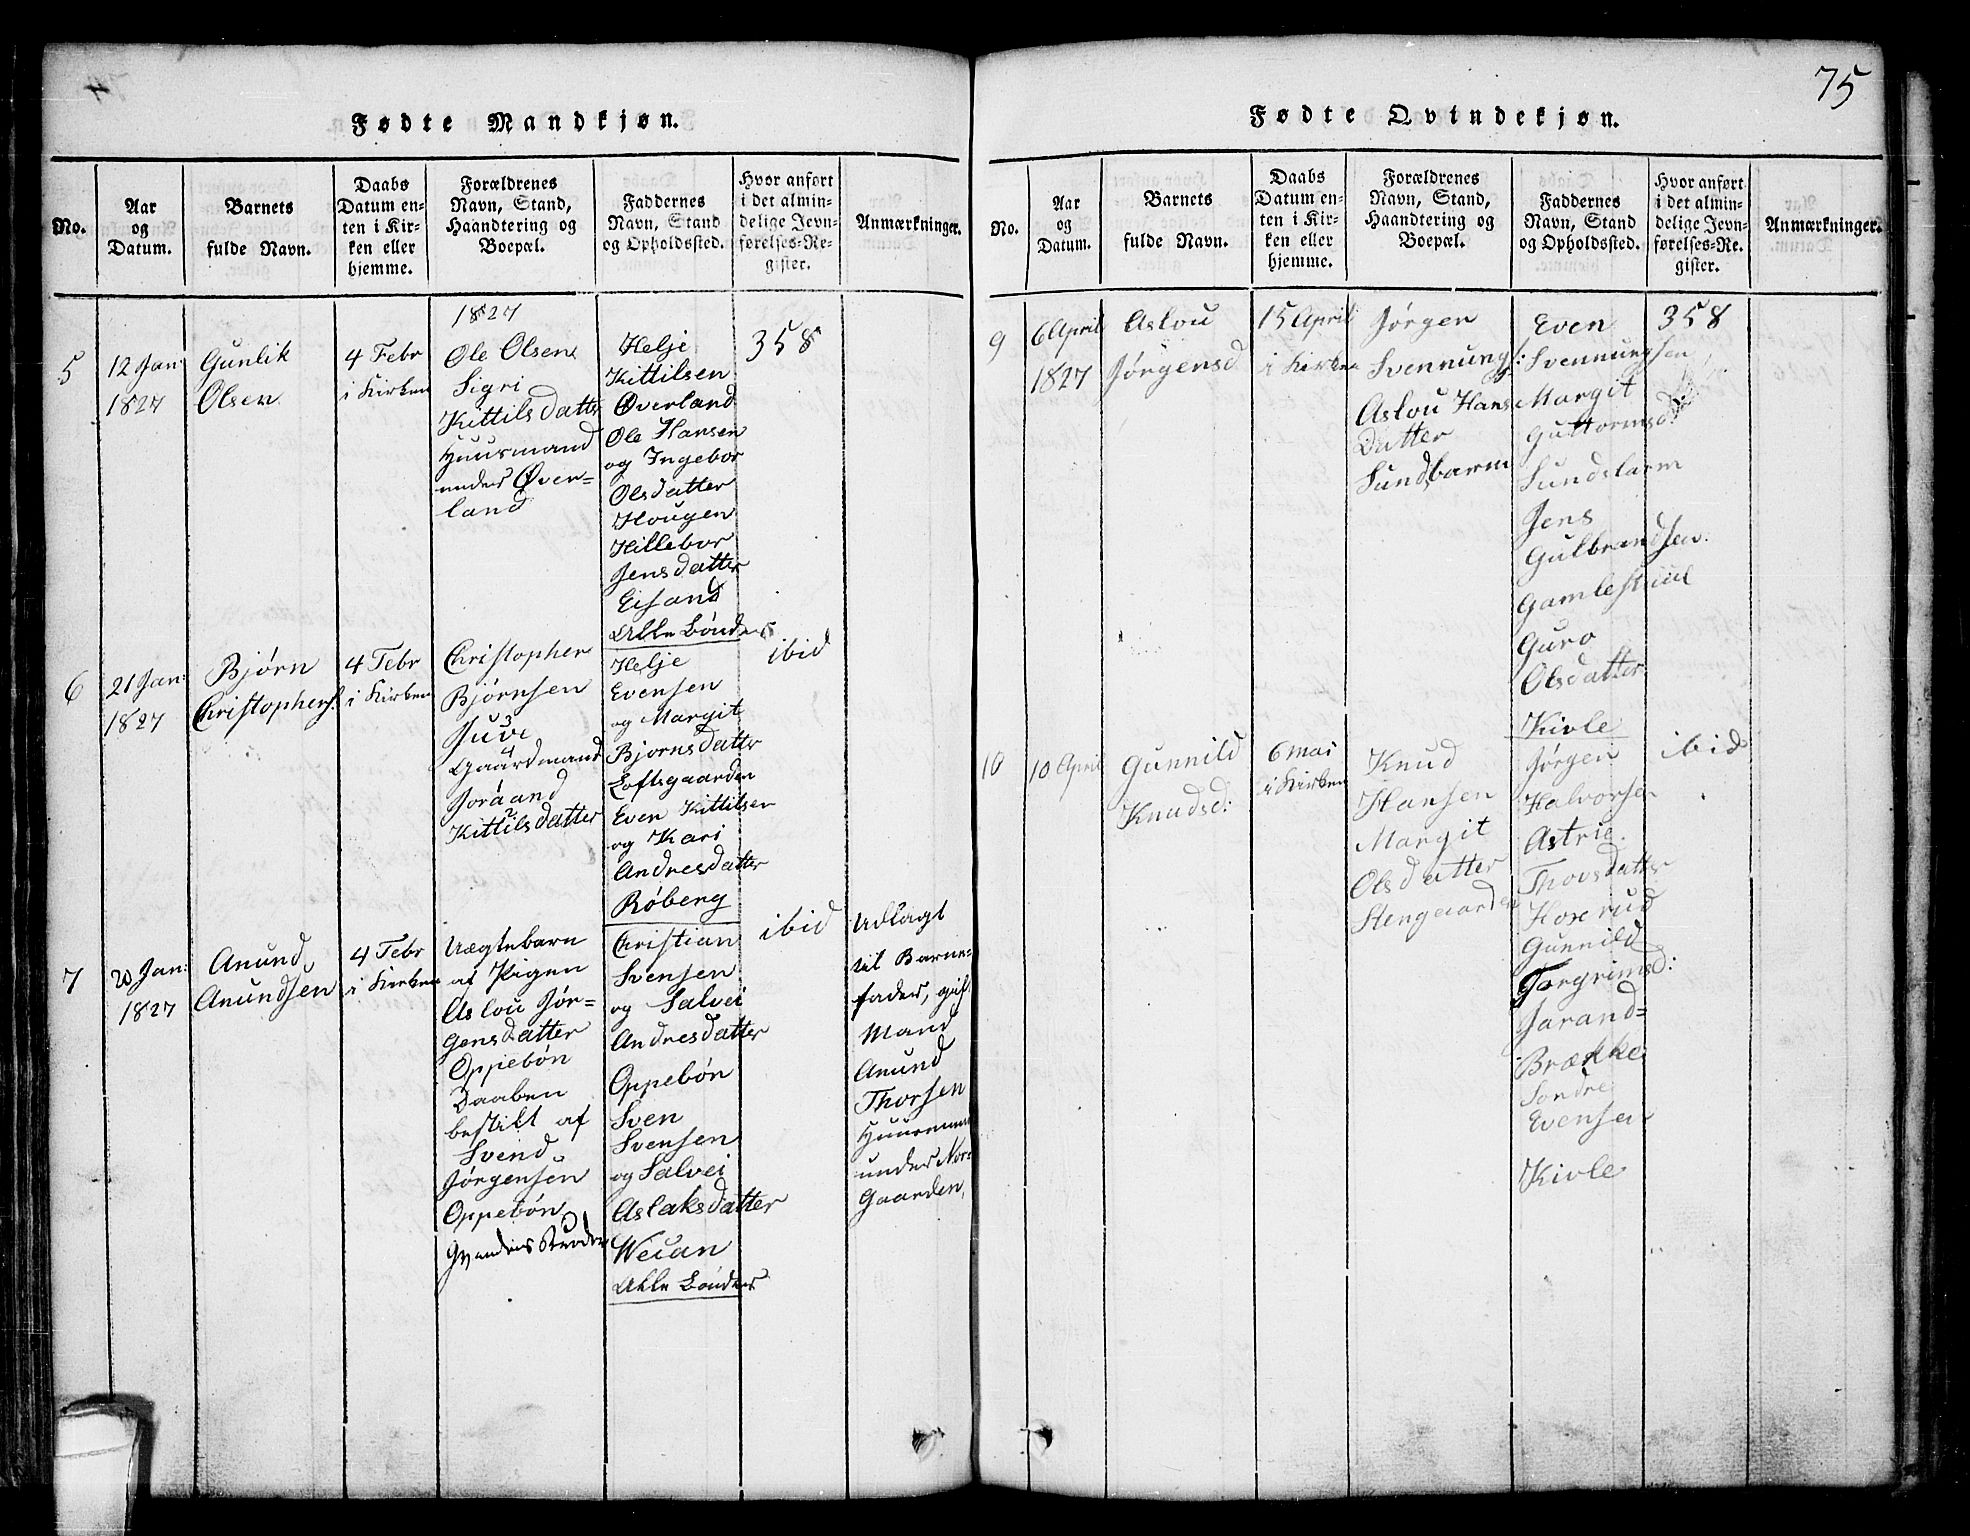 75
Fødte Mandkjøn.
No.
Aar
og
Datum.
Barnets
fulde Navn.
Daabs
Datum en-
ten i Kir-
ken eller
hjemme.
Forældrenes
Navn, Stand,
Haandtering og
Boepæl.
Faddernes
Navn, Stand
og Opholdssted.
Hvor anført
i det almin-
delige Jevn-
førelses-Re-
gister.
Anmærkninger.
1827
5
12 Jan:
1827
Gunlik
Olsen
4 Febr
i Kirken
Ole Olsen
Sigri
Kittilsdatter
Huusmand
under Øver=
land
Helje
Kittilsen
Øverland
Ole Hansen
og Ingebor
Olsdatter
Hougen
Hillebor
Jensdatter
Eisand
Alle Bønder
358
6
21 Jan:
1827
Bjørn
Christophers:
4 Febr
i Kirken
Christopher
Bjørnsen
Juve
Gaardmand
Joraand
Kittilsdatter
Helje
Evensen
og Margit
Bjornsdatter
Loftsgaarden
Even Kittilsen
og Kari
Andresdatter
Røberg
ibid
7
Jan:
1827
Anund
Anundsen
4 Febr
i Kirken
Uægtebarn
af Pigen
Aslou Jør=
gensdatter
Oppebøn
Daaben
bestilt af
Svend
Jørgensen
Oppebøn
Christian
Svensen
og Salvei
Andresdatter
Oppebøn
Sven
Svensen
og Salvei
Aslaksdatter
Weian
Alle Bønder
ibid
Udlagt
til Barne=
fader, gift
Mand
Anund
Thorsen
Huusmand
under Nor=
Gaarden
Fødte Qvindekjøn.
No.
Aar
og
Datum.
Barnets
fulde Navn.
Daabs
Datum en-
ten i Kir-
ken eller
hjemme.
Forældrenes
Navn, Stand,
Haandtering og
Boepæl.
Faddernes
Navn, Stand
og Opholdssted.
Hvor anført
i det almin-
delige Jevn-
førelses-Re-
gister.
Anmærkninger.
9
6 April
1827
Aslou
Jørgensd
15 April
i Kirken
Jørgen
Svennungs:
Aslou Hans
Datter
Sundbarm
Even
Svennungsen
Margit
Guttormsd:
Sundsbarm
Jens
Gulbrandsen
Gamlestuul
Guro
Olsdatter
Kivle
358
10
10 April
Gunnild
Knudsd:
6 Mai
i Kirken
Knud
Hansen
Margit
Olsdatter
Stengaarden
Jørgen
Halvorsen
Astrie
Thovsdatter
Hoserud
Gunnild
Torgrimsd:
Jarand=
Brække
Sondre
Evensen
Kivle
ibid